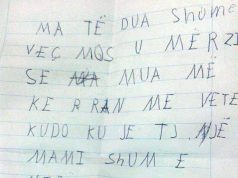 MA TË DUA ShUME
VEÇ MOS U MËRZI
SE MUA MË
KE RRAN ME VETE
KUDO KU JE TJ NJË
MAMI ShUM E